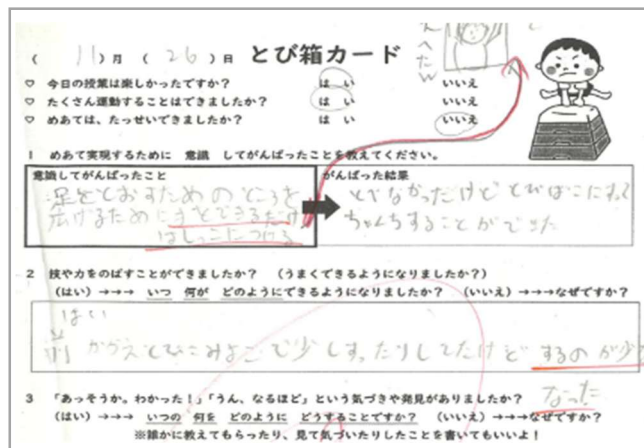 ( 11 ) 月 ( 26 ) 日 とび箱カード
♡ 今日の授業は楽しかったですか? はい いいえ
♡ たくさん運動することはできましたか? はい いいえ
♡ めあては、たっせいできましたか? はい いいえ
1 めあて実現するために 意識 してがんばったことを教えてください。
意識してがんばったこと
がんばった結果
足をとおすための
広げるために手をできるだけ
はしっこにつける
とべなかったけど とびばこに
ちゃくちすることができた
2 技や力をのばすことができましたか? (うまくできるようになりましたか?)
(はい) →→→ いつ 何が どのようにできるようになりましたか? (いいえ) →→→なぜですか?
はい
前 かかえとびこみ で少し たりしてたけど するのが少
なった
3 「あっそうか。わかった!」「うん、なるほど」という気づきや発見がありましたか?
(はい) →→→ いつの 何を どのように どうすることですか? (いいえ) →→→なぜですか?
※誰かに教えてもらったり、見て気づいたりしたことを書いてもいいよ!